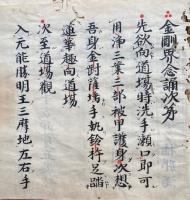 金剛界念誦次第
先欲向道場時洗手漱口即可
用淨三業三部被甲護身次想
吾身金剛薩埵手執鈴杵足踏
蓮華趣向道場
次至道場觀
入无能勝明王三摩地左右手